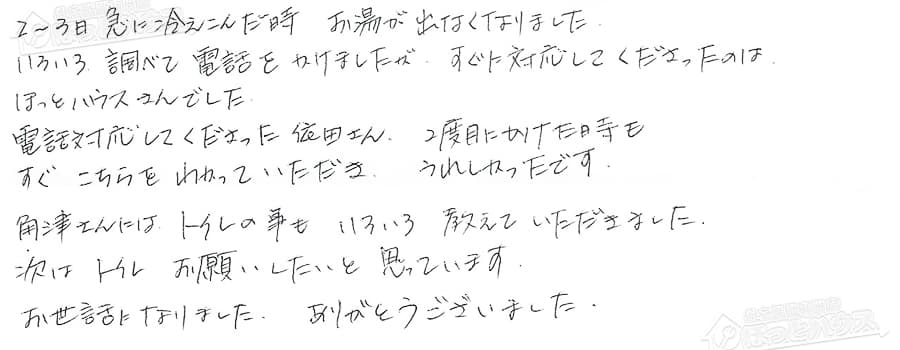 2〜3日 急に冷えこんだ時 お湯が出なくなりました.
いろいろ 調べて 電話を かけましたが. すぐに対応してくださったのは.
ほっとハウスさんでした.
電話対応してくださった 依田さん. 2度目にかけた時も
すぐ こちらを わかっていただき. うれしかったです.
角津さんには トイレの事も いろいろ 教えていただきました.
次は トイレ お願いしたいと 思っています.
お世話になりました. ありがとうございました.
ほっとハウス